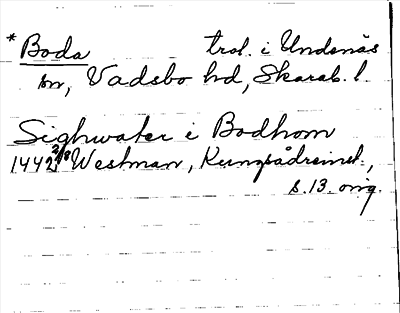 *Boda trol. i Undenäs
sn, Vadsbo hd, Skarab. l.
Sighwater i Bodhom
1442 2/8 Westman, Kungsådreinst.,
s. 13. orig.